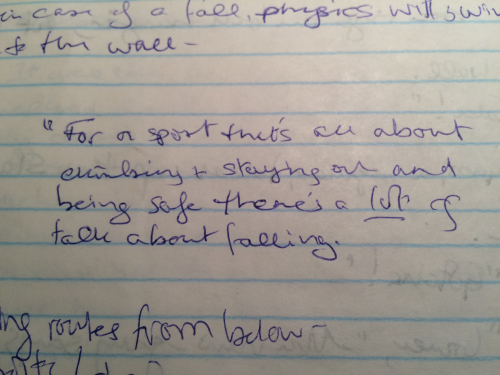 in case of a fall, physics will swin
the wall -
" For a sport that's all about
climbing + staying on and
being safe there's a lot of
talk about falling.
ng routes from below -